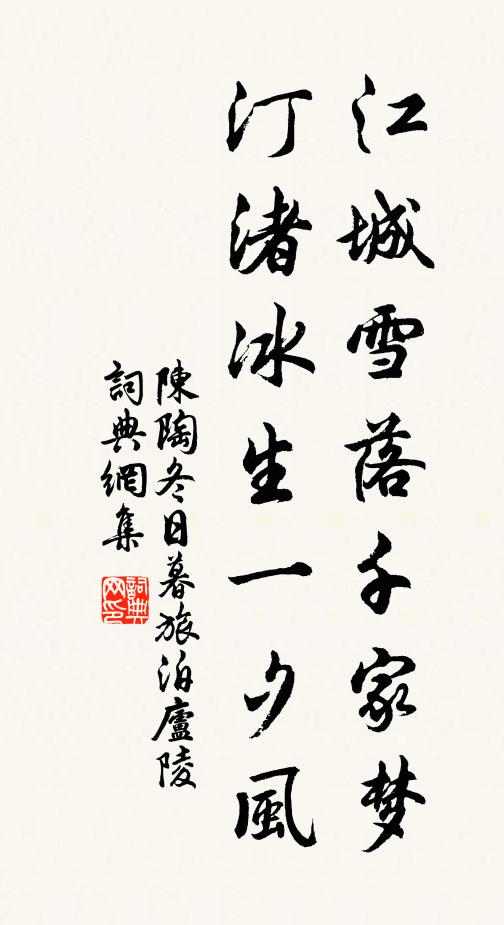 江城雪落千家梦
汀渚冰生一夕風
陳陶冬日暮旅泊廬陵
詞典網集
詞典網印